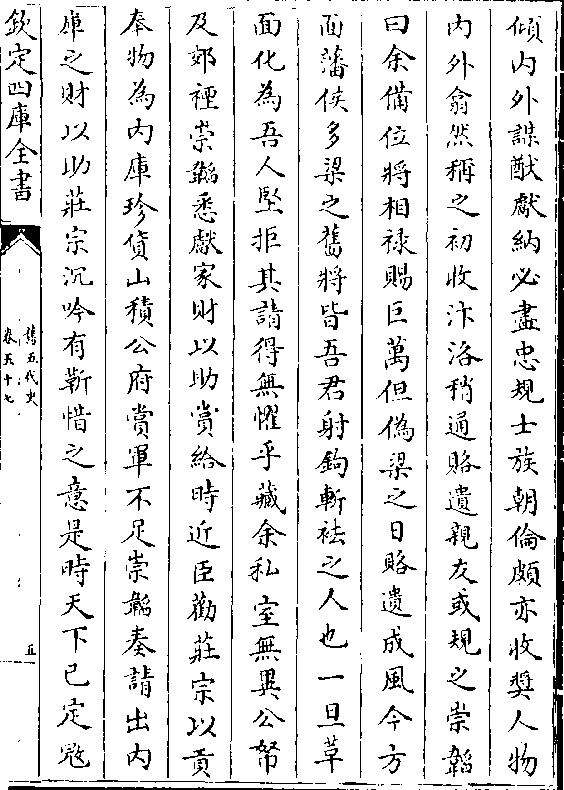 傾内外謀猷獻納必盡忠規士族朝倫頗亦收奬人物
内外翕然稱之初收汴洛稍通賂遺親友或規之崇韜
曰余備位將相禄賜巨萬但偽梁之日賂遺成風今方
面藩侯多梁之舊將皆吾君射鉤斬袪之人也一旦革
面化為吾人堅拒其請得無懼乎藏余私室無異公帑
及郊禋崇韜悉獻家財以助賞給時近臣勸莊宗以貢
奉物為内庫珍貨山積公府賞軍不足崇韜奏請出内
庫之財以助莊宗沉吟有靳惜之意是時天下已定寇
欽定四庫全書
舊五代史
卷五十七
五